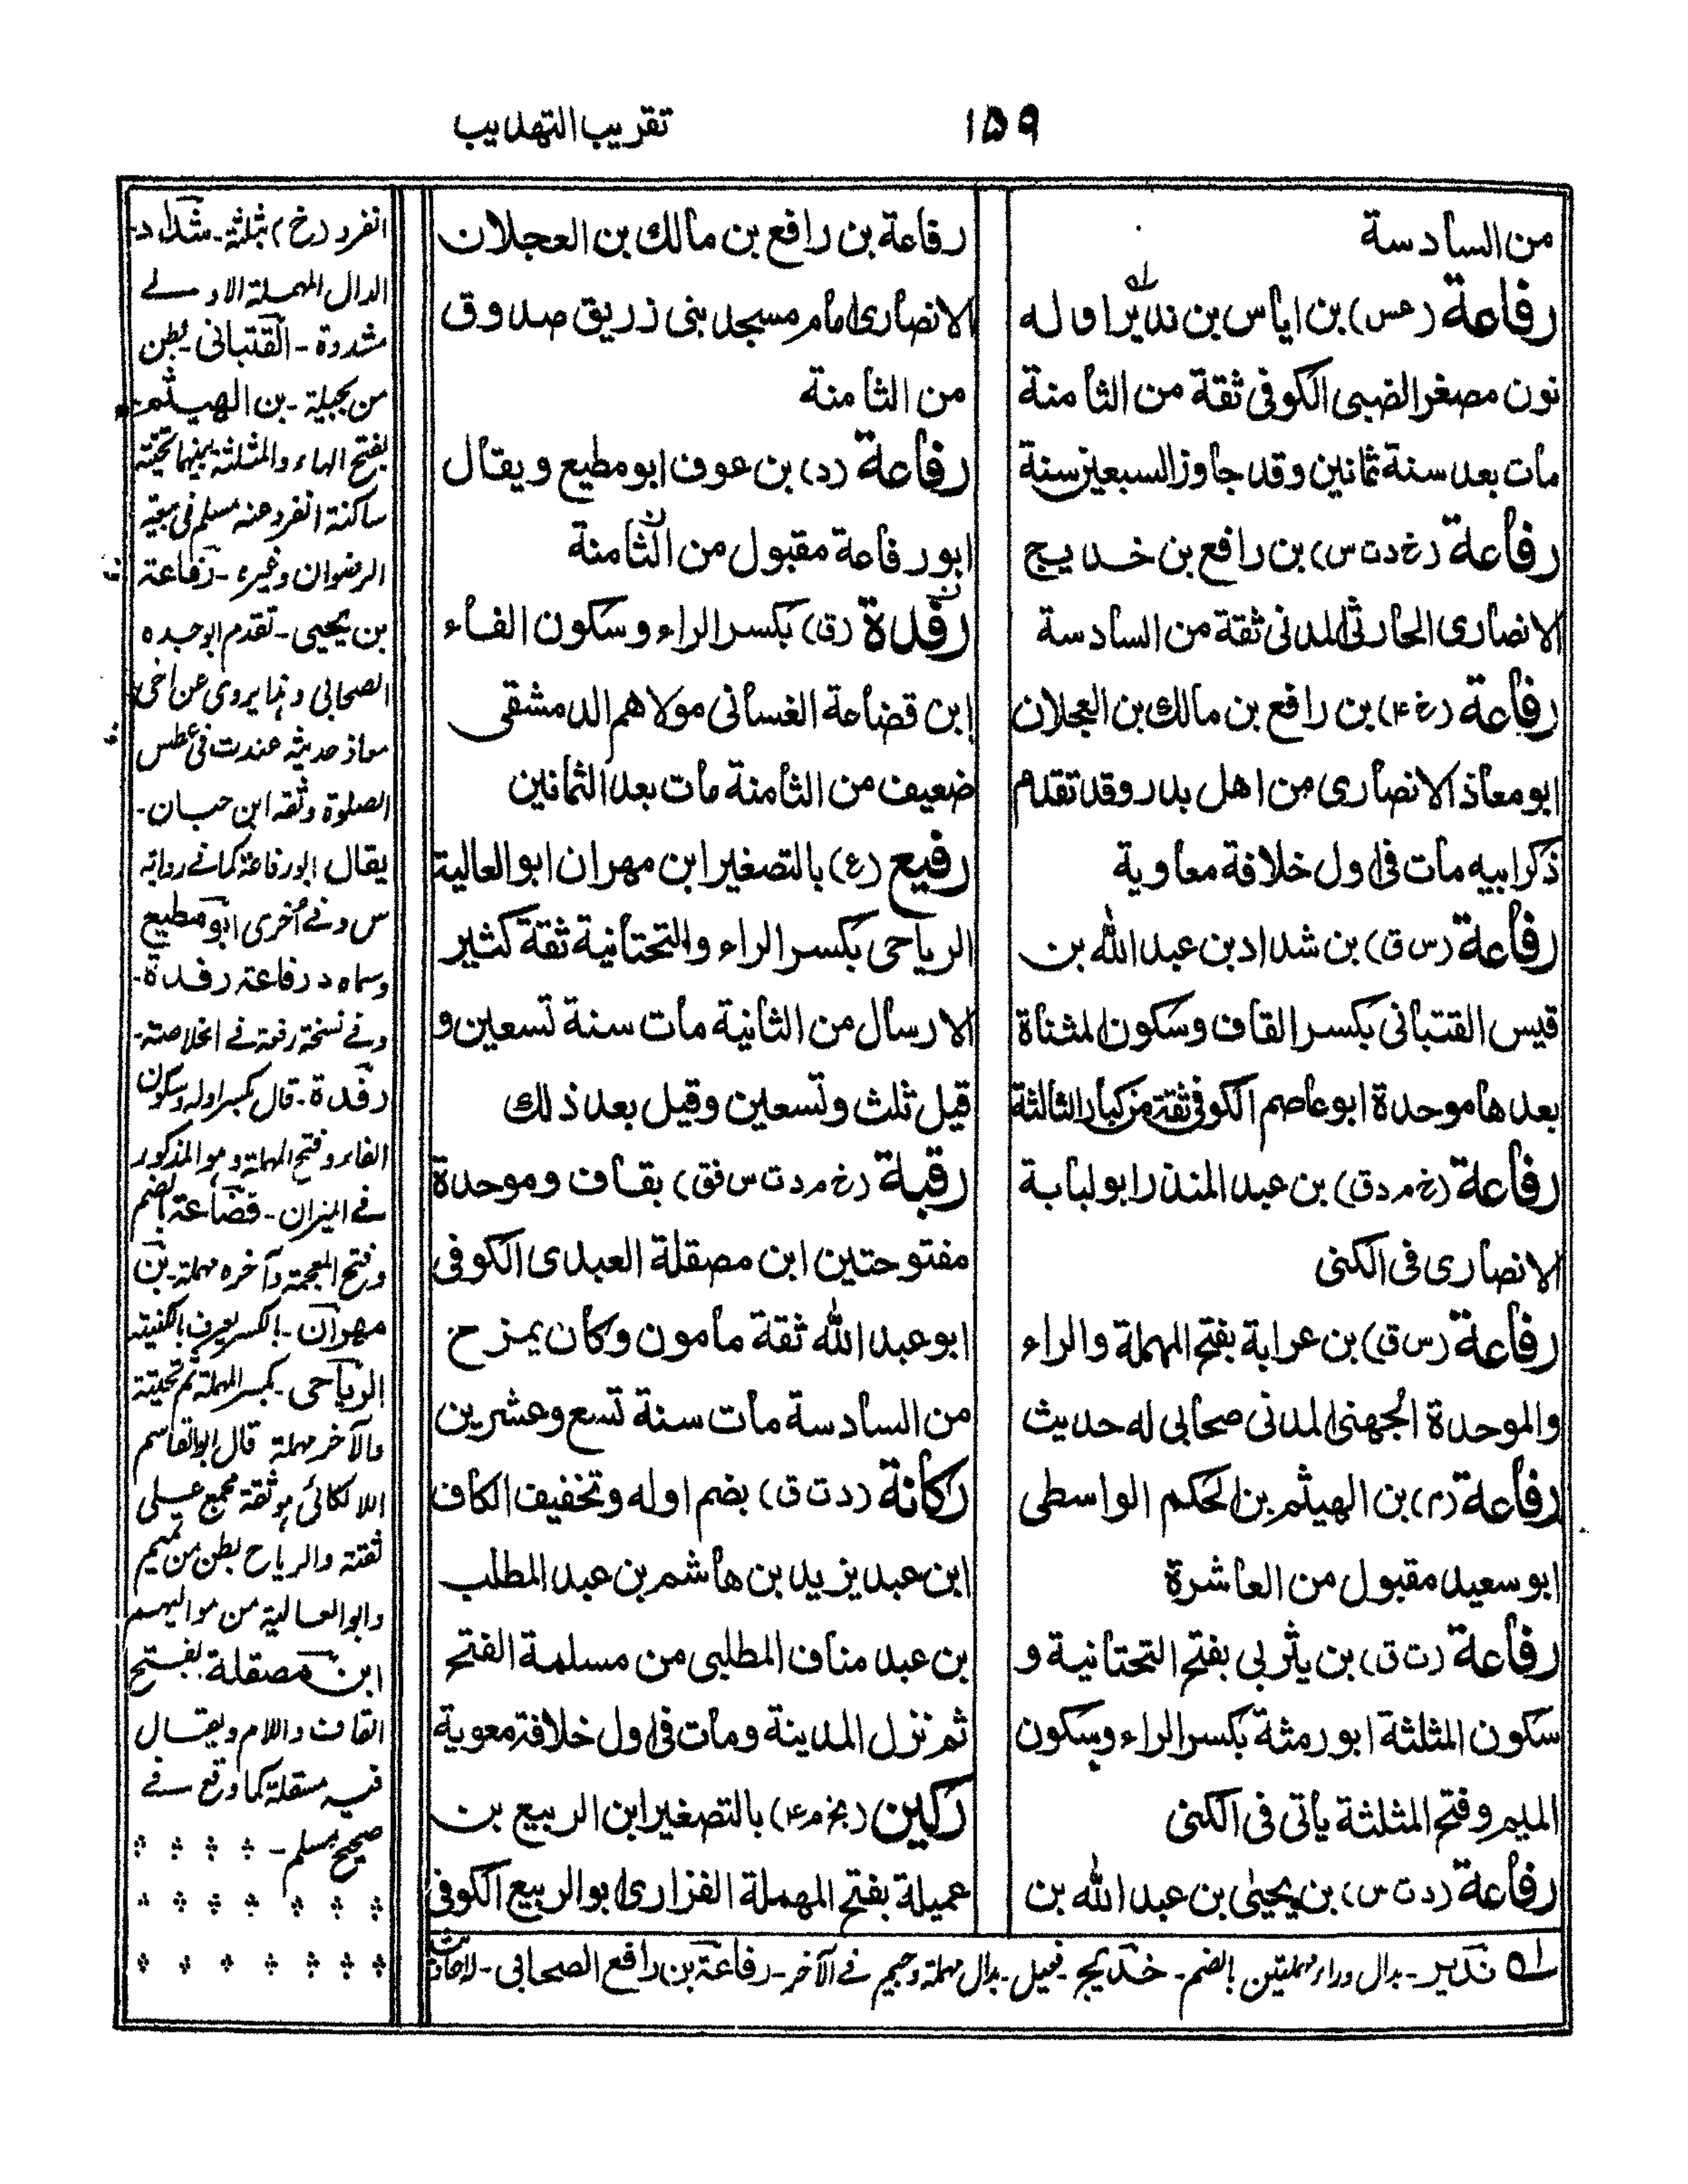 ۱۵۹
تقريب التهذيب
من السادسة
رفاعة (عس) بن اياس بن نذير اوله
نون مصغر الضبى الكوفى ثقة من الثامنة
مات بعد سنة ثمانين وقد جاوز السبعين سنة
رفاعة (خ د ت س) بن رافع بن خديج
الانصارى الحارثى المدنى ثقة من السادسة
رفاعة (خ ۴) بن رافع بن مالك بن العجلان
ابو معاذ الانصارى من اهل بدر وقد تقدم
ذكر ابيه مات فى اول خلافة معاوية
رفاعة (س ق) بن شداد بن عبد الله بن
قيس القتبانى بكسر القاف وسكون المثناة
بعدها موحدة ابو عاصم الكوفى ثقة من كبار الثالثة
رفاعة (خ م د ق) بن عبد المنذر ابو لبابة
الانصارى فى الكنى
رفاعة (س ق) بن عرابة بفتح المهملة والراء
والموحدة الجهنى المدنى صحابى له حديث
رفاعة (م) بن الهيثم بن الحكم الواسطى
ابو سعيد مقبول من العاشرة
رفاعة (ت ق) بن يثربى بفتح التحتانية و
سكون المثلثة ابو رمثة بكسر الراء وسكون
الميم وفتح المثلثة ياتى فى الكنى
رفاعة (د ت س) بن يحيى بن عبد الله بن
رفاعة بن رافع بن مالك بن العجلان
الانصارى امام مسجد بنى زريق صدوق
من الثامنة
رفاعة (د) بن عوف ابو مطيع ويقال
ابو رفاعة مقبول من الثامنة
رفدة (ق) بكسر الراء وسكون الفاء
ابن قضاعة الغسانى مولاهم الدمشقى
ضعيف من الثامنة مات بعد الثمانين
رفيع (ع) بالتصغير ابن مهران ابو العالية
الرياحى بكسر الراء والتحتانية ثقة كثير
الارسال من الثانية مات سنة تسعين و
قيل ثلث وتسعين وقيل بعد ذلك
رقبة (خ م د ت س فق) بقاف وموحدة
مفتوحتين ابن مصقلة العبدى الكوفى
ابو عبد الله ثقة مامون وكان يمزح
من السادسة مات سنة تسع وعشرين
ركانة (د ت ق) بضم اوله وتخفيف الكاف
ابن عبد يزيد بن هاشم بن عبد المطلب
بن عبد مناف المطلبى من مسلمة الفتح
ثم نزل المدينة ومات فى اول خلافة معوية
ركين (بخ م ۴) بالتصغير ابن الربيع بن
عميلة بفتح المهملة الفزارى ابو الربيع الكوفى
انفرد (خ) بثلثة - شداد -
الدال المهملة الاولے
مشددة - القتبانى - بطن
من بجيلة - بن الهيثم -
بفتح الهاء والمثلثة بينهما تحتية
ساكنة انفرد عنه مسلم فى بيعة
الرضوان وغيره - رفاعة
بن يحيى - تقدم ابو جده
الصحابى وهذا يروى عن اخى
معاذ حديثه عند ت فى عطس
الصلوة وثقه ابن حبان -
يقال ابو رفاعة كما فے رواية
س وفے اخرى ابو مطيع
وسماه د رفاعة رفدة -
وفے نسخة رفة فے الخلاصة -
رفدة - قال بكسر اوله وسكون
الفاء وفتح المهملة وهو المذكور
فے الميزان - قضاعة بضم
وفتح المعجمة وآخره مهملة - بن
مهران - بالكسر يعرف بالكنية
الرياحى - بكسر المهملة ثم تحتية
والآخر مهملة قال ابو القاسم
اللالكائى هو ثقة مجمع على
ثقته والرياح بطن من تميم
وابو العالية من مواليهم
ابن مصقلة بفتح
القاف واللام ويقال
فيه مسقلة كما وقع فے
صحيح مسلم -
له نذير - بدال وراء مهملتين بالضم - خديج - فعيل - بدال مهملة وجيم فے الآخر - رفاعة بن رافع الصحابى -